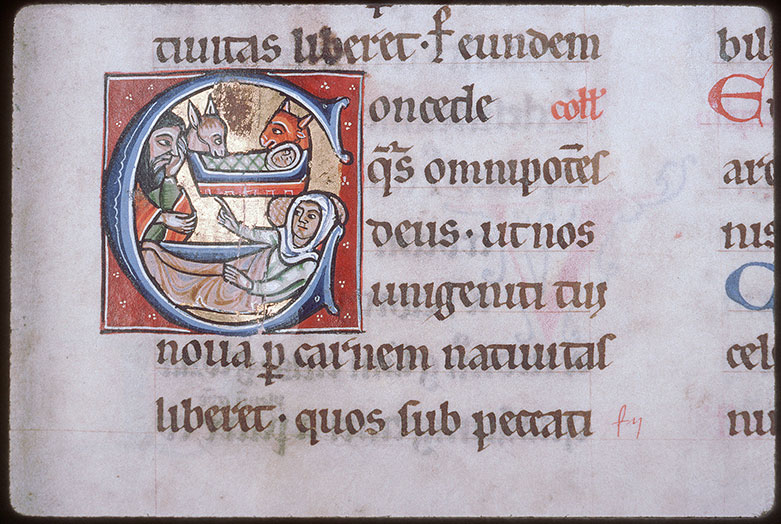 tiuitas liberet. f eundem
Concede coll
q̄s omnipotēs
deus. ut nos
unigeniti tui
noua ꝑ carnem natiuitas
liberet. quos sub peccati
bil
E
are
nis
C
cel
nu